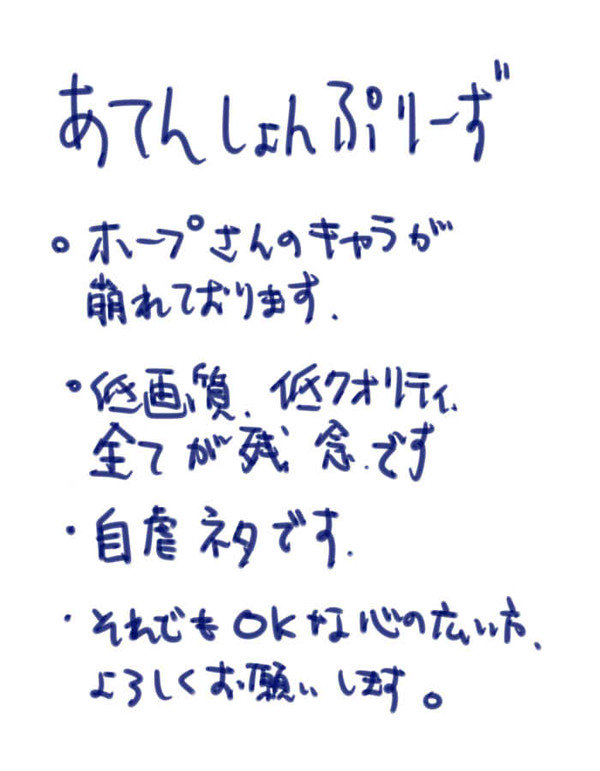 あてんしょんぷりーず
。ホープさんのキャラが
崩れております.
・低画質、低クオリティ、
全てが残念です
・自虐ネタです.
・それでもOKな心の広い方、
よろしくお願いします。